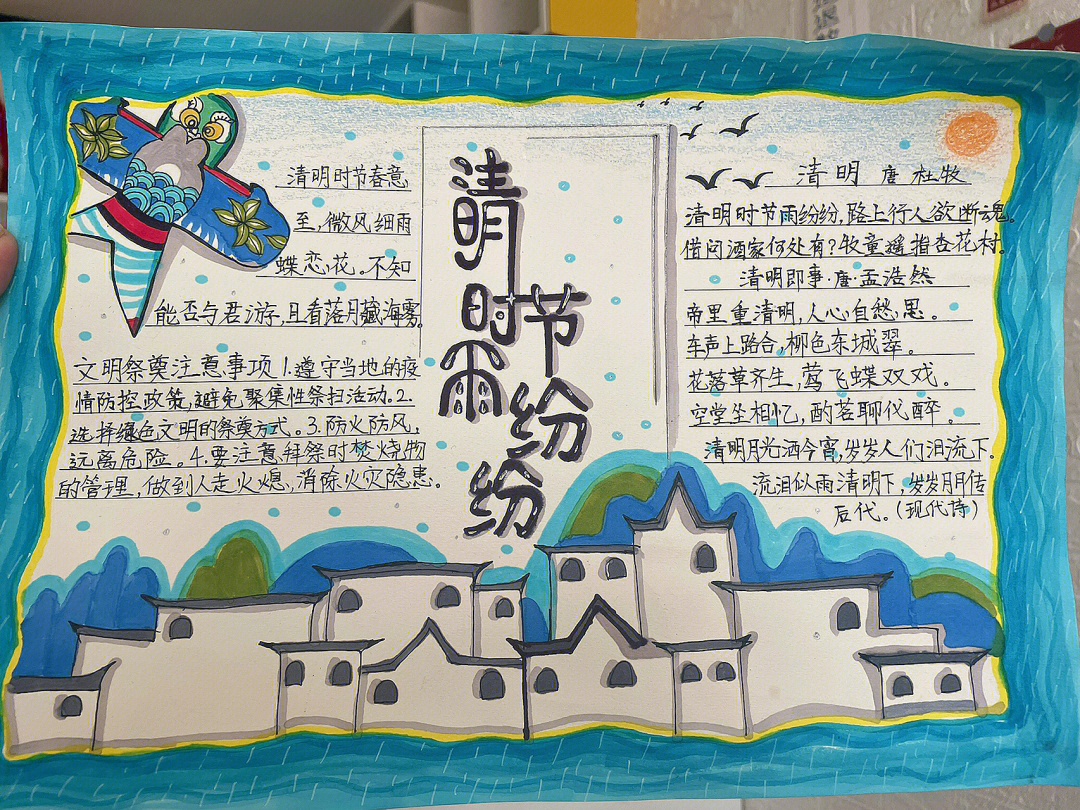 清明时节春意
至,微风细雨
蝶恋花。不知
能否与君游,且看落月藏海雾。
文明祭奠注意事项1.遵守当地的疫
情防控政策,避免聚集性祭扫活动.2.
选择绿色文明的祭奠方式。3.防火防风,
远离危险。4.要注意拜祭时焚烧物
的管理,做到人走火熄,消除火灾隐患。
清明
时节
雨纷
纷
清明 唐 杜牧
清明时节雨纷纷,路上行人欲断魂。
借问酒家何处有?牧童遥指杏花村。
清明即事·唐·孟浩然
帝里重清明,人心自愁思。
车声上路合,柳色东城翠。
花落草齐生,莺飞蝶双戏。
空堂坐相忆,酌茗聊代醉。
清明月光洒今宵,岁岁人们泪流下。
流泪似雨清明下,岁岁月月传
后代。(现代诗)